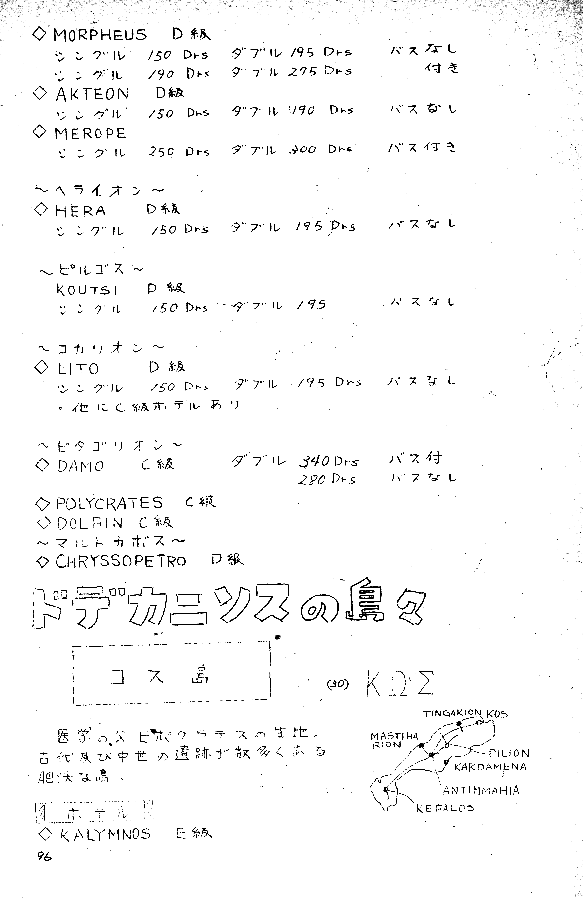 ◇ MORPHEUS D級
シングル 150 Drs ダブル 195 Drs バスなし
シングル 190 Drs ダブル 275 Drs 付き
◇ AKTEON D級
シングル 150 Drs ダブル 190 Drs バスなし
◇ MEROPE
シングル 250 Drs ダブル 300 Drs バス付き
～ヘライオン～
◇ HERA D級
シングル 150 Drs ダブル 195 Drs バスなし
～ピルゴス～
KOUTSI D級
シングル 150 Drs ダブル 195 バスなし
～コカリオン～
◇ LITO D級
シングル 150 Drs ダブル 195 Drs バスなし
・他にC級ホテルあり
～ピタゴリオン～
◇ DAMO C級 ダブル 340 Drs バス付
280 Drs バスなし
◇ POLYCRATES C級
◇ DOLFIN C級
～マルトカボス～
◇ CHRYSSOPETRO D級
ドデカニソスの島々
コス島
(30) ΚΩΣ
医学の父ヒポクラテスの生地。
古代及び中世の遺跡が数多くある
肥沃な島。
TINGAKION KOS
MASTIHA
RION
PILION
KARDAMENA
ANTIMMAHIA
KEFALOS
ホテル
◇ KALYMNOS E級
96